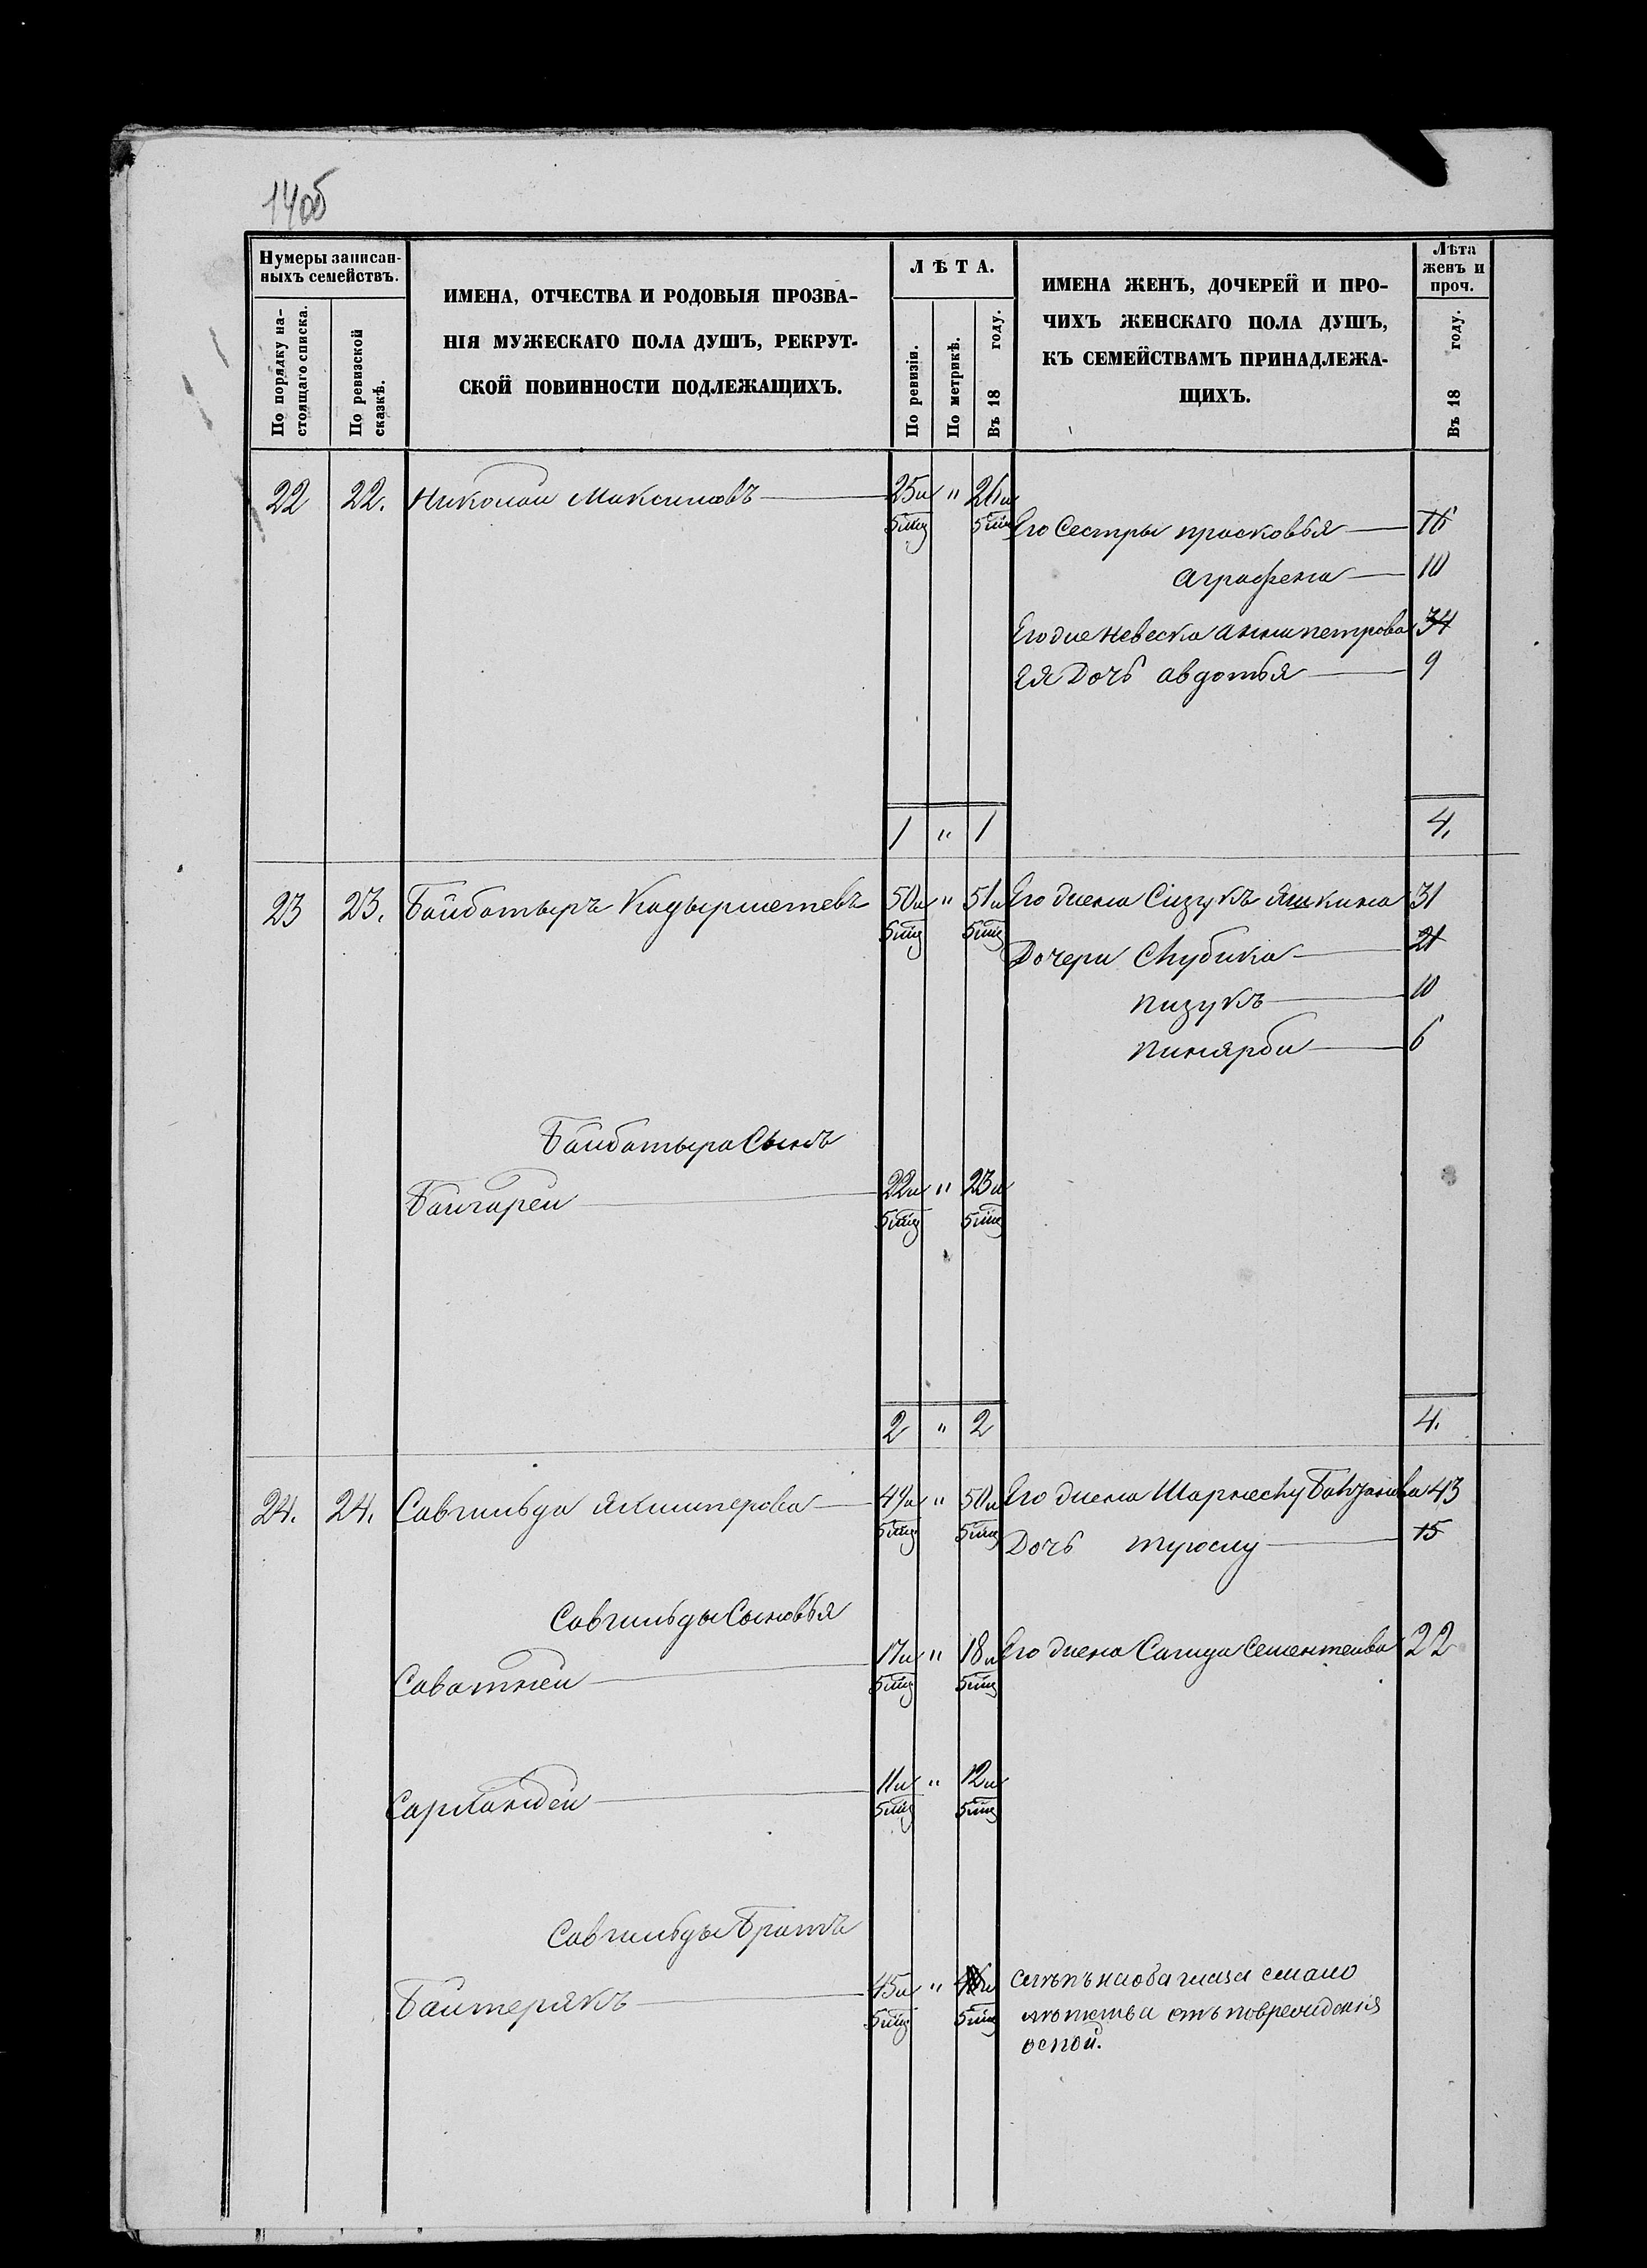 14об
Нумеры записан-
ныхъ семействъ.
По порядку на-
стоящаго списка.
По ревизской
сказкѣ.
ИМЕНА, ОТЧЕСТВА И РОДОВЫЯ ПРОЗВА-
НІЯ МУЖЕСКАГО ПОЛА ДУШЪ, РЕКРУТ-
СКОЙ ПОВИННОСТИ ПОДЛЕЖАЩИХЪ.
ЛѢТА.
По ревизіи.
По метрикѣ.
Въ 18 году.
ИМЕНА ЖЕНЪ, ДОЧЕРЕЙ И ПРО-
ЧИХЪ ЖЕНСКАГО ПОЛА ДУШЪ,
КЪ СЕМЕЙСТВАМЪ ПРИНАДЛЕЖА-
ЩИХЪ.
Лѣта
женъ и
проч.
Въ 18 году.
22 22. Николай Максимовъ 25и " 26и
5мц 5мц Его Сестры прасковья
аграфена 10
Его же невеска анна петрова 34
Ея Дочь авдотья 9
1 " 1 4.
23 23. Байбатыръ Кадырметевъ 50и " 51и Его жена Сизукъ Яшкина 31
5мц 5мц Дочери 21
пизукъ 10
пинярби 6
Байбатыра Сынъ
Байгарей 22и " 23и
5мц 5мц
2 " 2 4.
24. 24. Савгильда Якшиперова 49и " 50и Его жена
43
5мц 5мц Дочь туюслу 15
Савгильды Сыновья
Саватней 17и " 18и Его жена Сагида 22
5мц 5мц
11и " 12и
5мц 5мц
Савгильды Братъ
Байтерякъ 45и " слѣпъ на оба глаза смало
5мц 5мц лѣтства отъ повреждения
оспой.